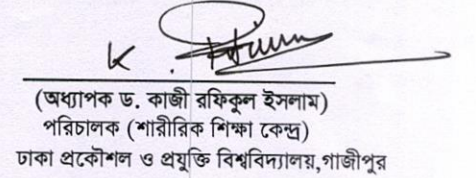 (অধ্যাপক ড. কাজী রফিকুল ইসলাম)
পরিচালক (শারীরিক শিক্ষা কেন্দ্র)
ঢাকা প্রকৌশল ও প্রযুক্তি বিশ্ববিদ্যালয়,গাজীপুর